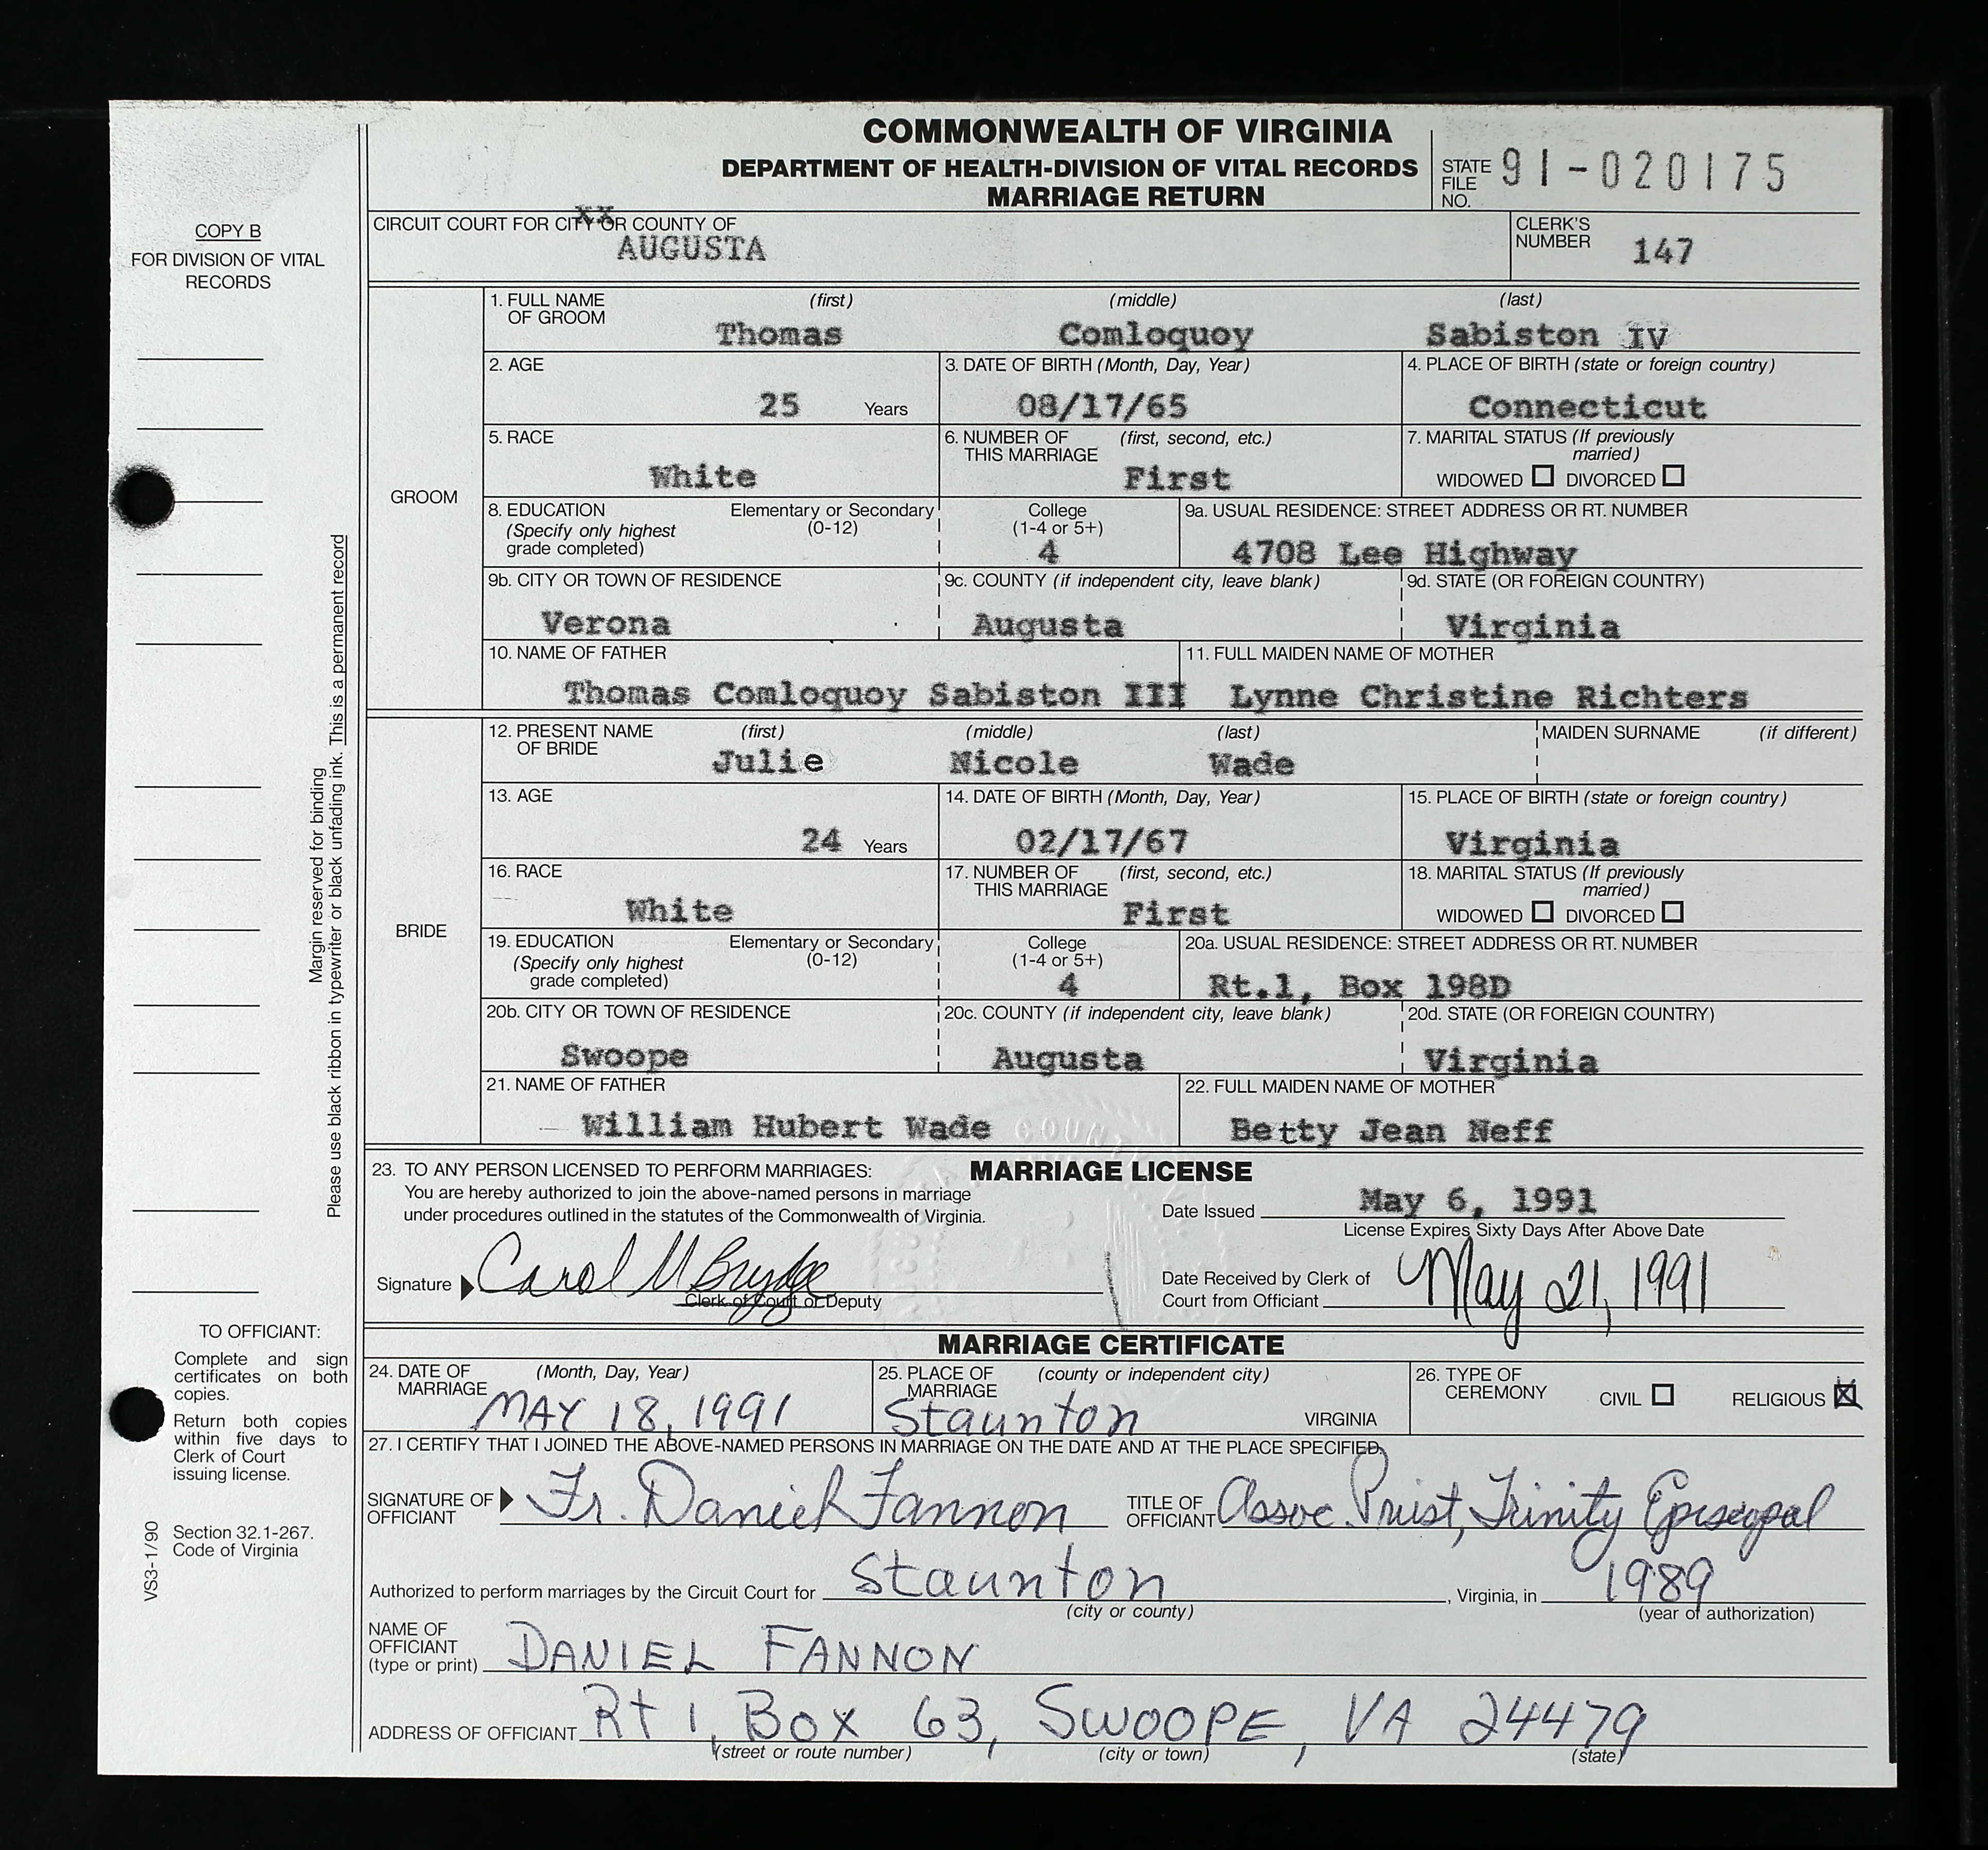 COMMONWEALTH OF VIRGINIA
DEPARTMENT OF HEALTH-DIVISION OF VITAL RECORDS
MARRIAGE RETURN
STATE FILE NO. 91-020175
COPY B
FOR DIVISION OF VITAL
RECORDS
CIRCUIT COURT FOR CITY OR COUNTY OF
xx
AUGUSTA
CLERK'S NUMBER 147
GROOM
1. FULL NAME OF GROOM (first) (middle) (last)
Thomas Comloquoy Sabiston IV
2. AGE 3. DATE OF BIRTH (Month, Day, Year) 4. PLACE OF BIRTH (state or foreign country)
25 Years 08/17/65 Connecticut
5. RACE 6. NUMBER OF THIS MARRIAGE (first, second, etc.) 7. MARITAL STATUS (If previously married)
White First WIDOWED DIVORCED
8. EDUCATION (Specify only highest grade completed) Elementary or Secondary (0-12) College (1-4 or 5+) 9a. USUAL RESIDENCE: STREET ADDRESS OR RT. NUMBER
4 4708 Lee Highway
9b. CITY OR TOWN OF RESIDENCE 9c. COUNTY (if independent city, leave blank) 9d. STATE (OR FOREIGN COUNTRY)
Verona Augusta Virginia
10. NAME OF FATHER 11. FULL MAIDEN NAME OF MOTHER
Thomas Comloquoy Sabiston III Lynne Christine Richters
BRIDE
12. PRESENT NAME OF BRIDE (first) (middle) (last) MAIDEN SURNAME (if different)
Julie Nicole Wade
13. AGE 14. DATE OF BIRTH (Month, Day, Year) 15. PLACE OF BIRTH (state or foreign country)
24 Years 02/17/67 Virginia
16. RACE 17. NUMBER OF THIS MARRIAGE (first, second, etc.) 18. MARITAL STATUS (If previously married)
White First WIDOWED DIVORCED
19. EDUCATION (Specify only highest grade completed) Elementary or Secondary (0-12) College (1-4 or 5+) 20a. USUAL RESIDENCE: STREET ADDRESS OR RT. NUMBER
4 Rt.1, Box 198D
20b. CITY OR TOWN OF RESIDENCE 20c. COUNTY (if independent city, leave blank) 20d. STATE (OR FOREIGN COUNTRY)
Swoope Augusta Virginia
21. NAME OF FATHER 22. FULL MAIDEN NAME OF MOTHER
William Hubert Wade Betty Jean Neff
Margin reserved for binding
Please use black ribbon in typewriter or black unfading ink. This is a permanent record
23. TO ANY PERSON LICENSED TO PERFORM MARRIAGES: MARRIAGE LICENSE
You are hereby authorized to join the above-named persons in marriage
under procedures outlined in the statutes of the Commonwealth of Virginia.
Date Issued May 6, 1991
License Expires Sixty Days After Above Date
Signature Carol M Brydge
Clerk of Court or Deputy
Date Received by Clerk of
Court from Officiant May 21, 1991
MARRIAGE CERTIFICATE
24. DATE OF MARRIAGE (Month, Day, Year) 25. PLACE OF MARRIAGE (county or independent city) 26. TYPE OF CEREMONY CIVIL RELIGIOUS X
MAY 18, 1991 Staunton VIRGINIA
27. I CERTIFY THAT I JOINED THE ABOVE-NAMED PERSONS IN MARRIAGE ON THE DATE AND AT THE PLACE SPECIFIED.
SIGNATURE OF OFFICIANT Fr. Daniel Fannon TITLE OF OFFICIANT Assoc. Priest, Trinity Episcopal
Authorized to perform marriages by the Circuit Court for Staunton, Virginia, in 1989
(city or county) (year of authorization)
NAME OF OFFICIANT (type or print) DANIEL FANNON
ADDRESS OF OFFICIANT Rt 1, BOX 63, SWOOPE, VA 24479
(street or route number) (city or town) (state)
TO OFFICIANT:
Complete and sign
certificates on both
copies.
Return both copies
within five days to
Clerk of Court
issuing license.
Section 32.1-267.
Code of Virginia
VS3-1/90